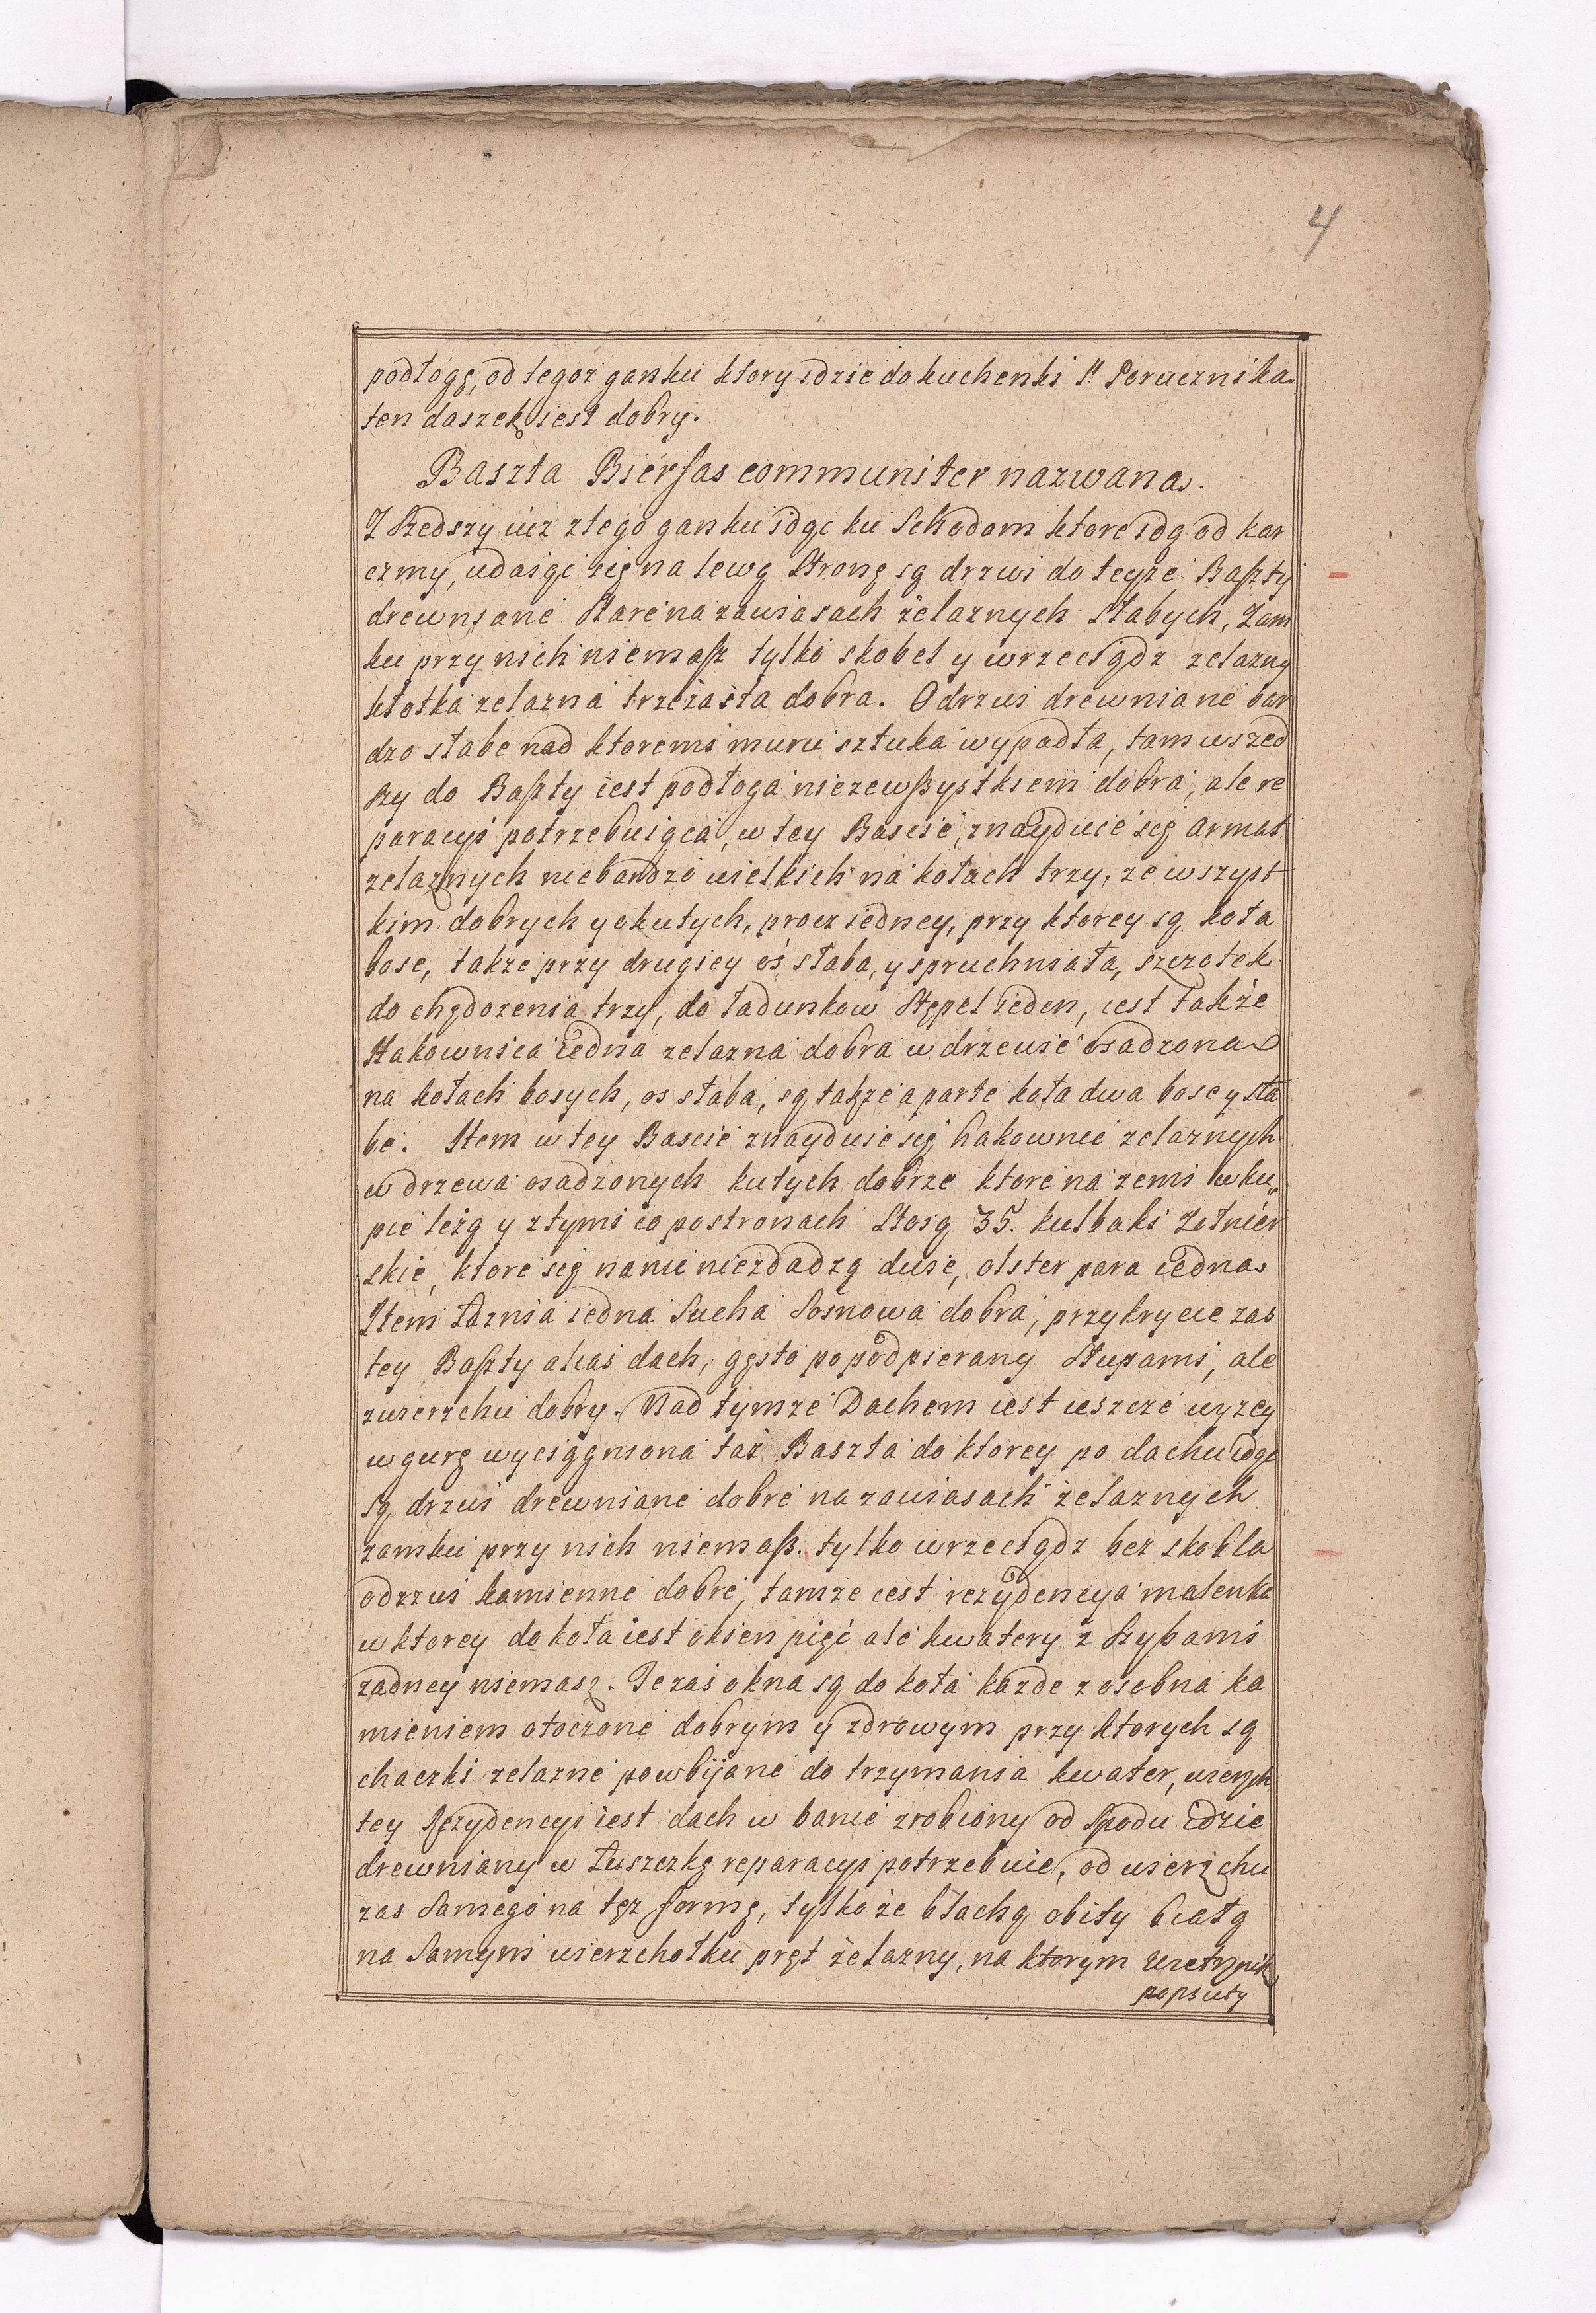 4
podłogę, od tegoż ganku ktory idzie do kuchenki P. Porucznika
ten daszek iest dobry.
Baszta Bierfas communiter nazwana.
Zszedszy iuz z tego ganku idąc ku Schodom ktore idą od kar
czmy, udaiąc się na lewą stronę są drzwi do teyże Baszty
drewniane stare na zawiasach żelaznych słabych, Zam
ku przy nich niemasz tylko skobel y wrzeciądz zelazny
kłotka zelazna trzeżasta dobra. Odrzwi drewniane bar
dzo słabe nad ktoremi muru sztuka wypadła, tam wszed
szy do Baszty iest podłoga niezewszystkiem dobra, ale re
paracyi potrzebuiąca, w tey Bascie, znayduie się armat
zelaznych niebardzo wielkich na kołach trzy, ze wszyst
kim dobrych y okutych, procz iedney, przy ktorey są koła
bose, takze przy drugiey oś słaba, y spruchniała, szczotek
do chędozenia trzy, do ładunkow stępel ieden, iest także
Hakownica iedna zelazna dobra w drzewie osadzona
na kołach bosych, os słaba, są także aparte koła dwa bose y sła
be. Item w tey Bascie znayduie się hakownic zelaznych
w drzewa osadzonych kutych dobrze ktore na zemi w ku„
pie leżą y z tymi co po stronach stoią 35. kulbaki Zołnier
skie, ktore się na nic niezdadzą dwie, olster para iedna
Item Łaznia iedna Sucha Sosnowa dobra, przykrycie zas
tey Baszty alias dach, gęsto popodpierany słupami, ale
zwierzchu dobry. Nad tymze Dachem iest ieszcze wyzey
w gurę wyciągniona taż Baszta do ktorey po dachu idąc
są drzwi drewniane dobre na zawiasach żelaznych
zamku przy nich niemasz. tylko wrzeciądz bez skobla
odrzwi kamienne dobre, tamze iest rezydencya malenka
w ktorey do koła iest okien pięć ale kwatery z szybami
zadney niemasz. Te zaś okna są do koła każde z osobna ka
mieniem otoczone dobrym y zdrowym przy ktorych są
chaczki zelazne powbijane do trzymania kwater, wierzch
tey Rezydencyi iest dach w banie zrobiony od spodu idzie
drewniany w Łuszczkę reparacyi potrzebuie, od wierzchu
zas Samego na tęz formę, tylko że blachą obity białą
na Samym wierzchołku pręt żelazny, na ktorym Wietrznik
popsuty